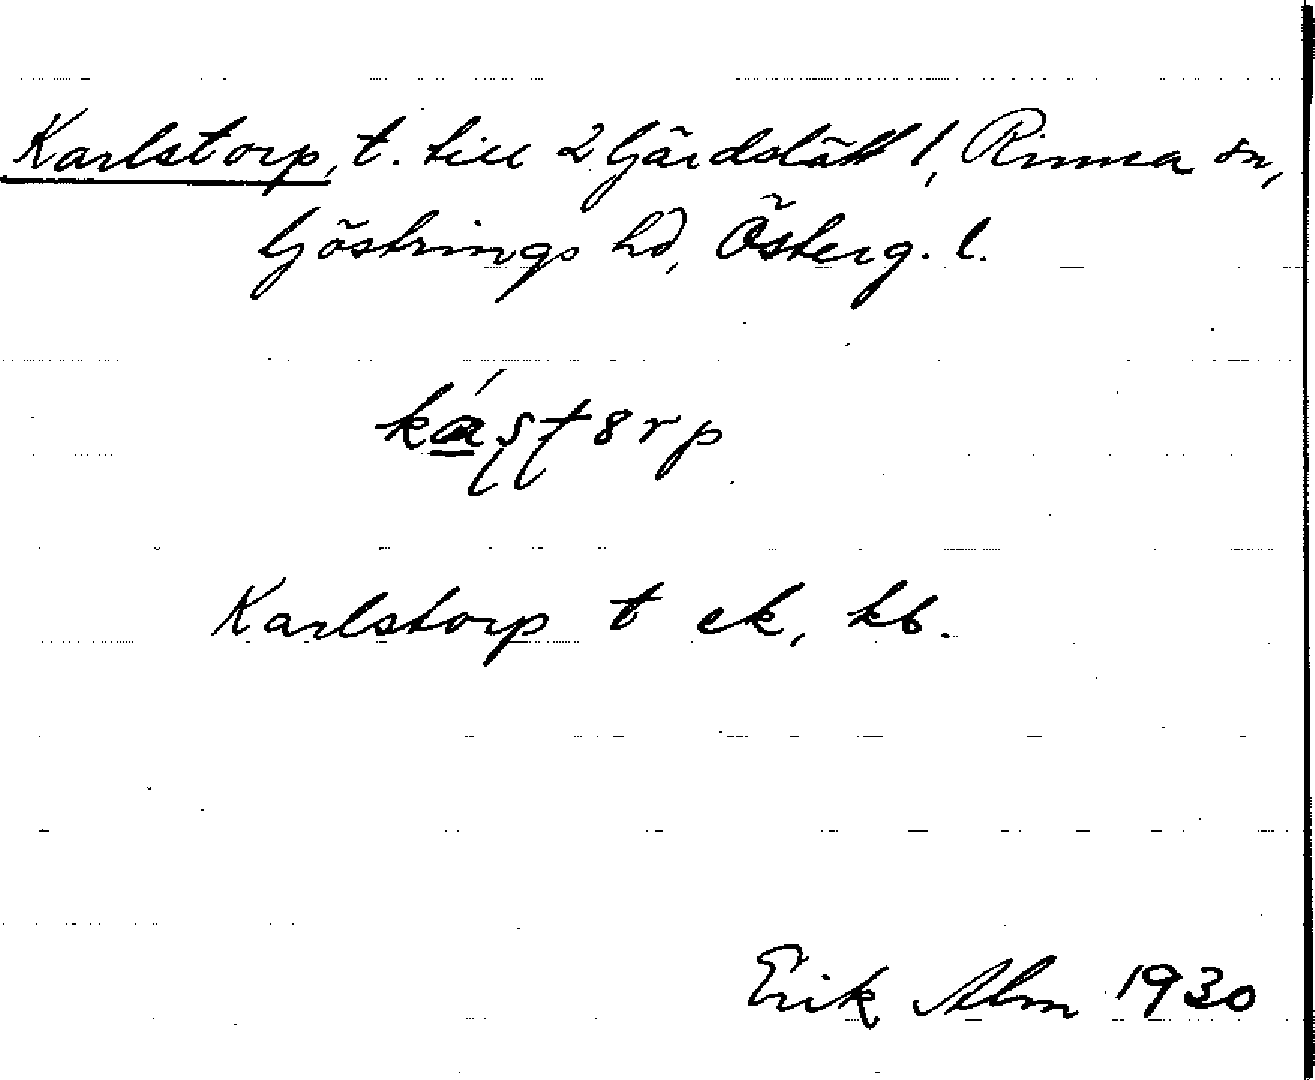 Karlstorp, t. till 2 Gärdslätt 1, Rinna sn,
Göstrings hd, Österg. l.
ká̱ʂʈ8rp
Karlstorp t ek, kb.
Erik Alm 1930